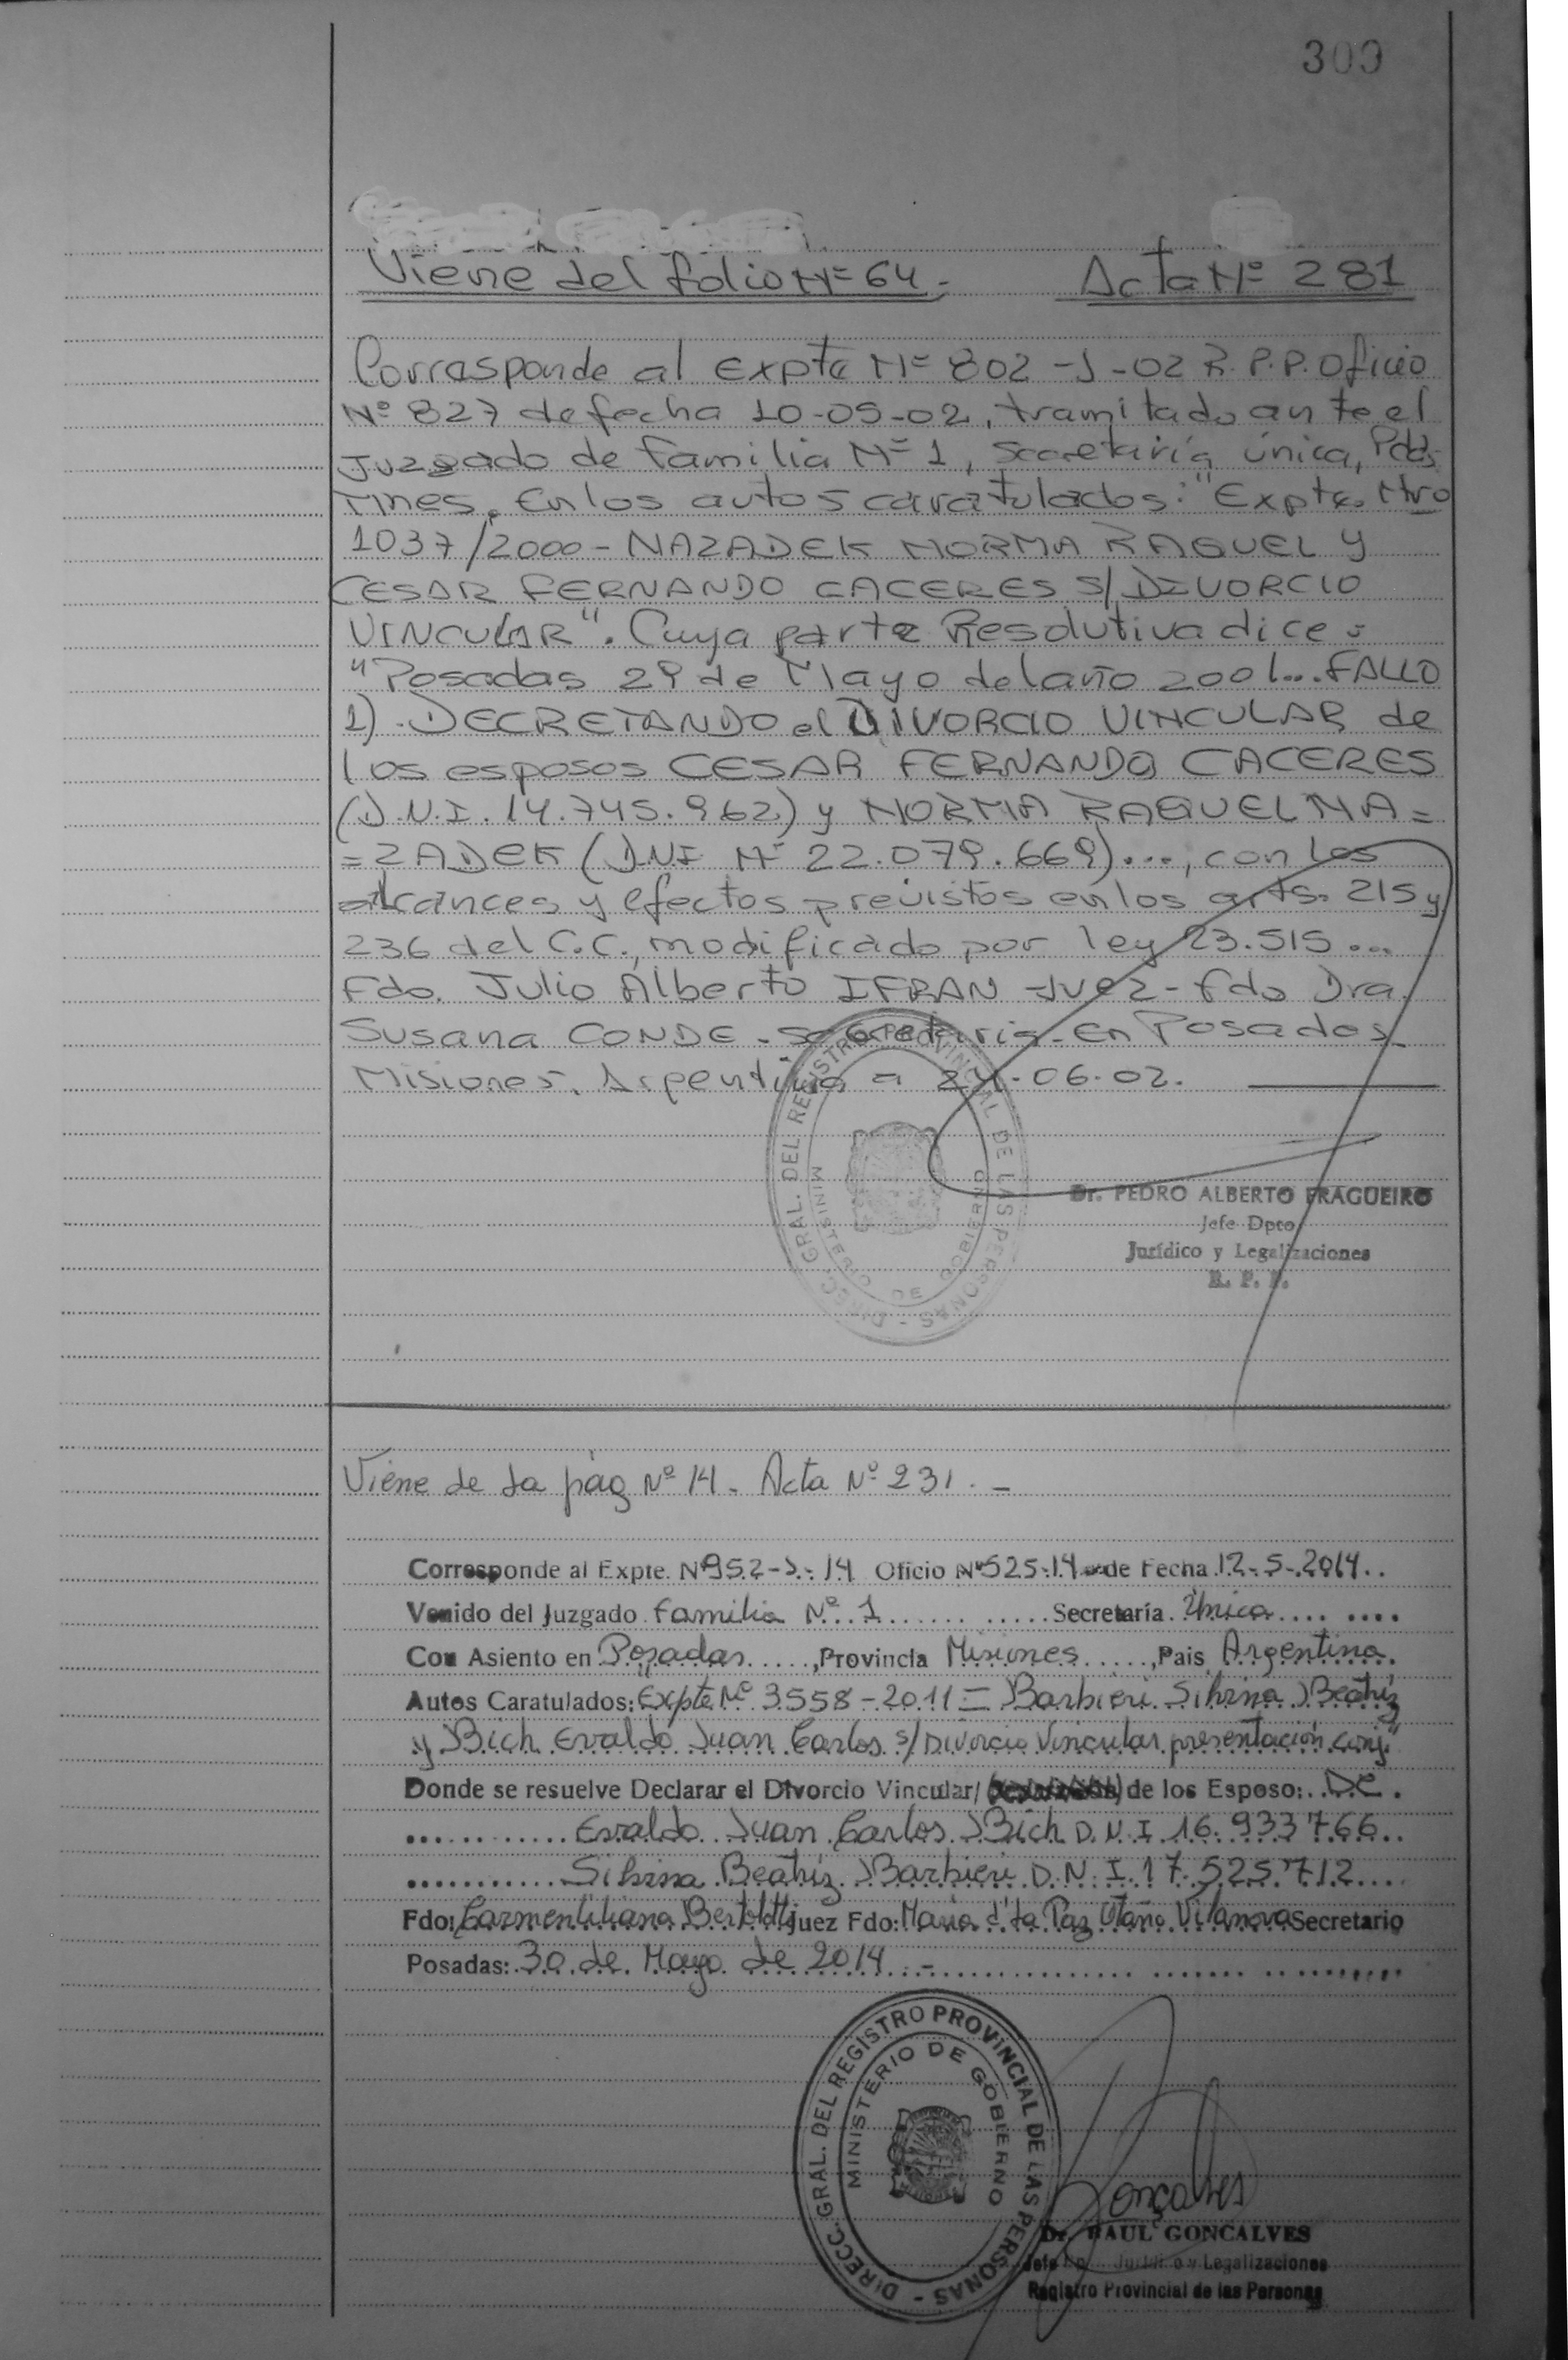 300
Viene del folio Nº 64.- Acta Nº 281
Corresponde al Expte Nº 802-J-02 R.P.P. Oficio
Nº 827 de fecha 10-05-02, tramitado ante el
Juzgado de Familia Nº 1, Secretaría única, Pdas
Mnes. En los autos caratulados: "Expte. Nro
1037/2000 - NAZADEK NORMA RAQUEL y
CESAR FERNANDO CACERES S/ DIVORCIO
VINCULAR". Cuya parte Resolutiva dice:
"Posadas 29 de Mayo del año 2001... FALLO
1). DECRETANDO el DIVORCIO VINCULAR de
los esposos CESAR FERNANDO CACERES
(D.N.I. 14.745.962) y NORMA RAQUEL NA=
=ZADEK (D.N.I Nº 22.079.669)..., con los
alcances y efectos previstos en los arts. 215 y
236 del C.C., modificado por ley 23.515...
Fdo. Julio Alberto IFRAN - Juez - fdo Dra.
Susana CONDE - Secretaria - En Posadas
Misiones, Argentina a 24-06-02.
DIRECC. GRAL. DEL REGISTRO PROVINCIAL DE LAS PERSONAS -
MINISTERIO DE GOBIERNO
Dr. PEDRO ALBERTO FRAGUEIRO
Jefe Dpto
Jurídico y Legalizaciones
R. P. P.
Viene de la pág Nº 14. Acta Nº 231. -
Corresponde al Expte. Nº 952-J-14 Oficio Nº 525-14 de Fecha 12-5-2014..
Venido del Juzgado Familia Nº 1 Secretaría Única
Con Asiento en Posadas, Provincia Misiones, Pais Argentina.
Autos Caratulados: "Expte Nº 3558-2011 = Barbieri Silvina Beatriz
y Bich Evaldo Juan Carlos s/ Divorcio Vincular presentación conj."
Donde se resuelve Declarar el Divorcio Vincular/ de los Esposo: De.
Evaldo Juan Carlos Bich D.N.I. 16.933766
Silvina Beatriz Barbieri D.N.I. 17.525712
Fdo: Carmen Liliana Bertolotti Juez Fdo: María d' la Paz Otaño Vilanova Secretario
Posadas: 30 de Mayo de 2014.-
DIRECC. GRAL. DEL REGISTRO PROVINCIAL DE LAS PERSONAS -
MINISTERIO DE GOBIERNO
Gonçalves
Dr. RAUL GONCALVES
Jefe Jurídico y Legalizaciones
Registro Provincial de las Personas